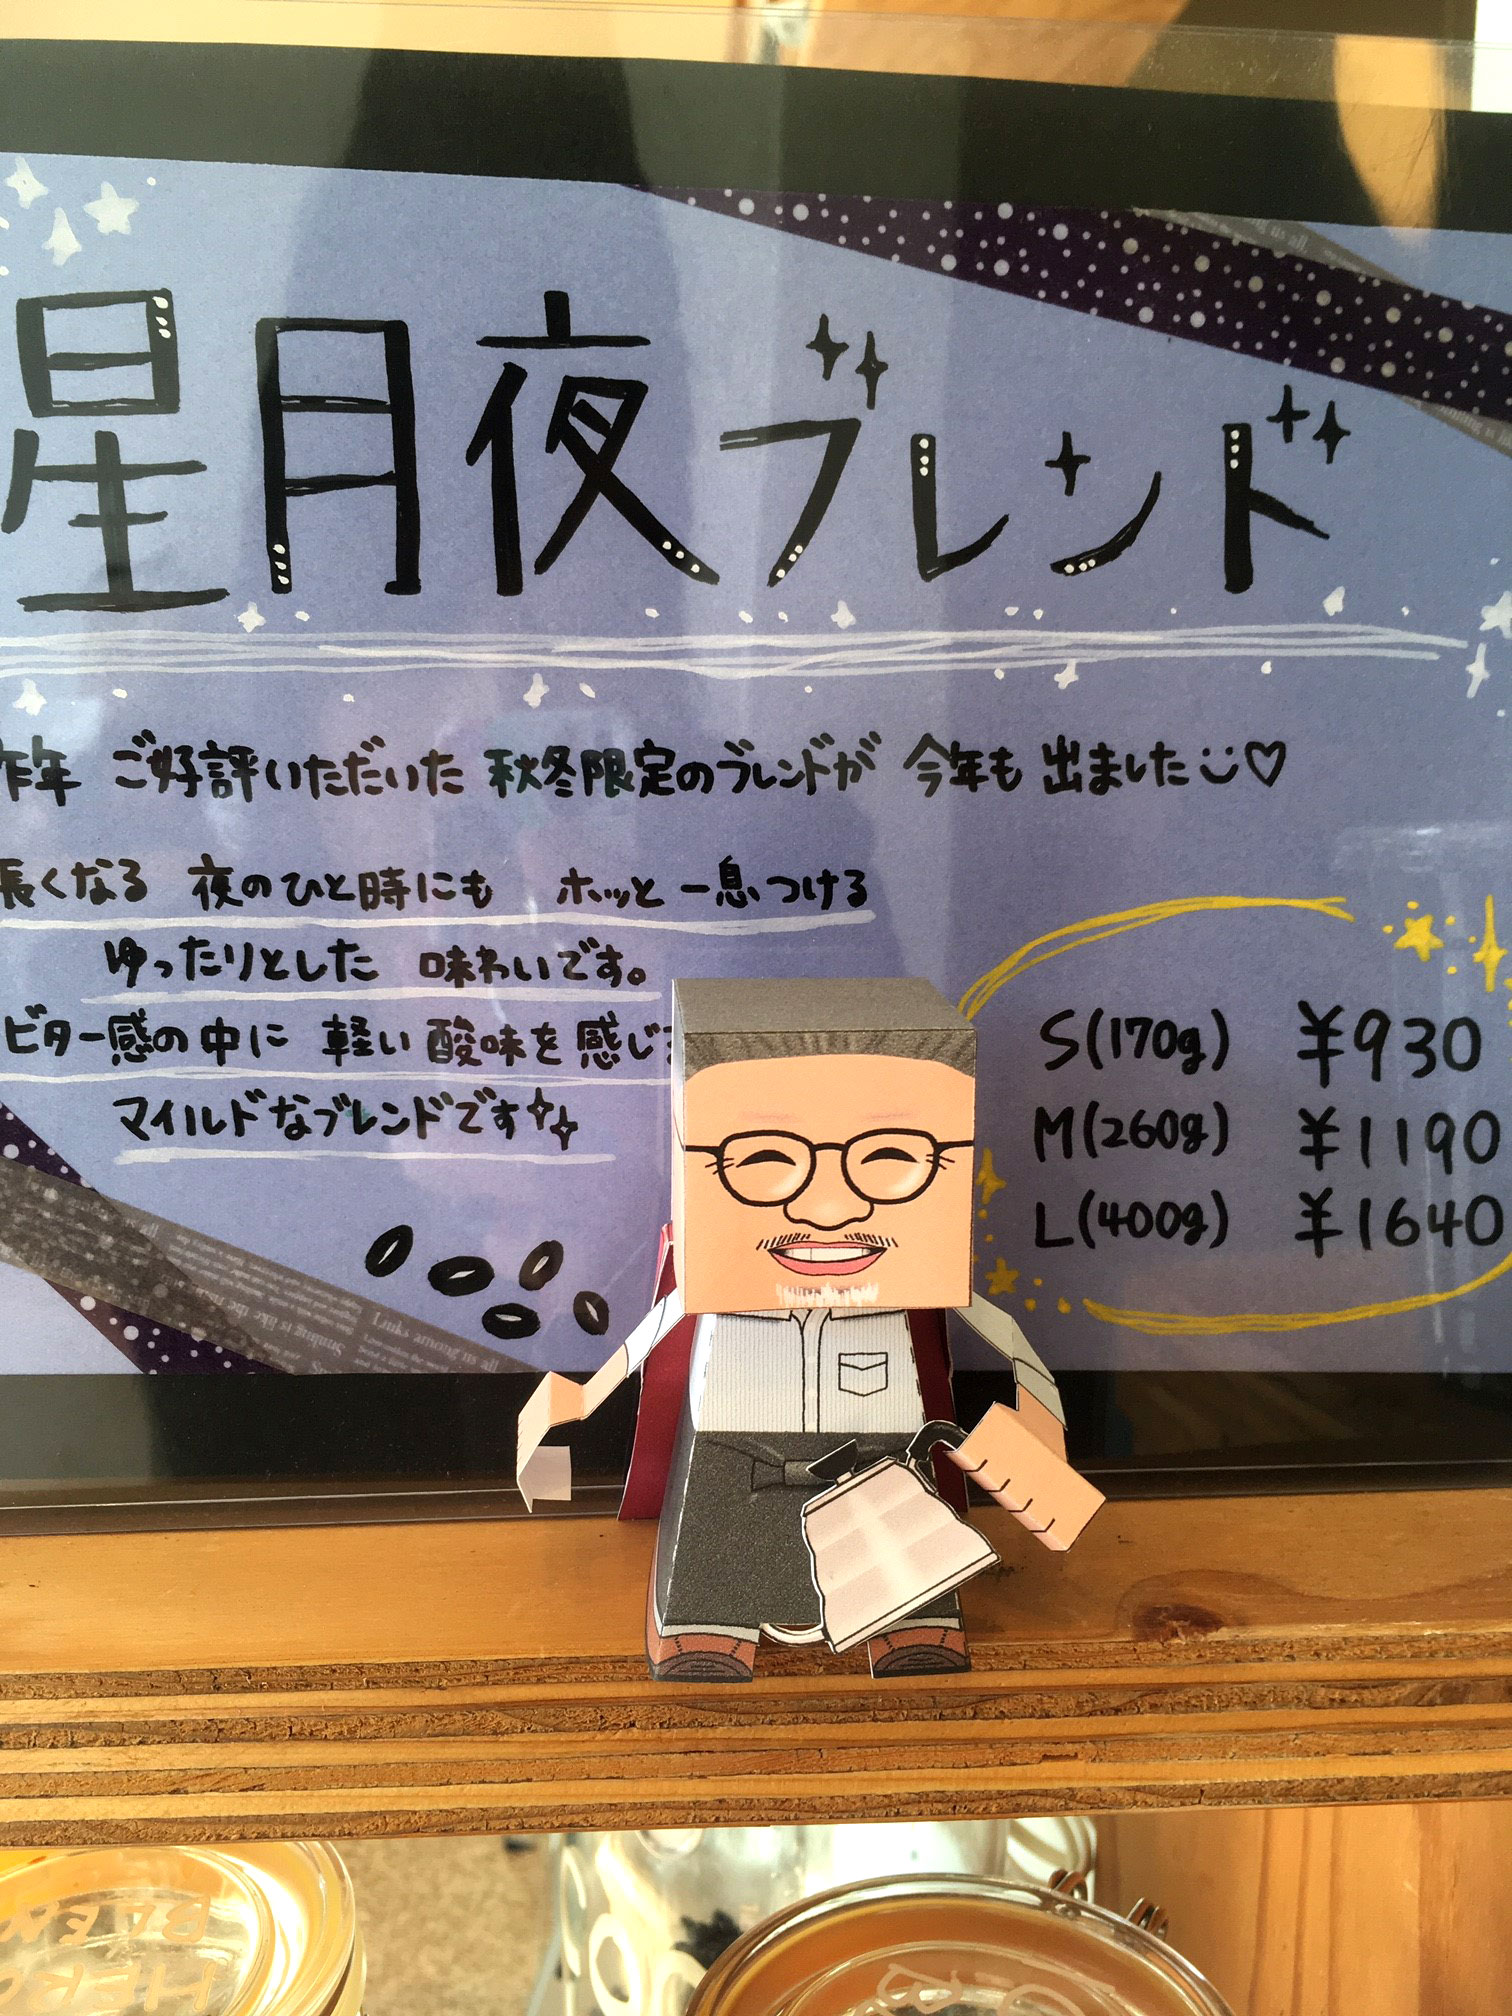 星月夜ブレンド
昨年 ご好評いただいた 秋冬限定のブレンドが 今年も 出ました
長くなる 夜のひと時にも ホッと 一息つける
ゆったりとした 味わいです。
ビター感の中に 軽い 酸味を 感じ
マイルドなブレンドです
S(170g) ¥930
M(260g) ¥1190
L(400g) ¥1640